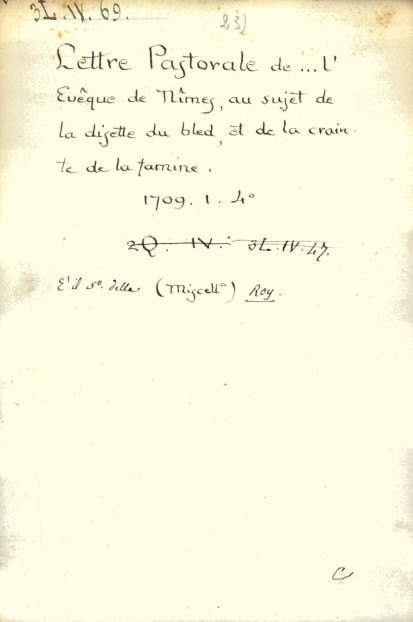 3L. IV. 69.
23)
Lettre Pastorale de ... l'
Evêque de Nîmes, au sujet de
la disette du bled, et de la crain-
te de la famine.
1709. 1. 4°
2Q. IV. 3L. IV. 47.
E' il 5°. della (Miscell<sup>a</sup>) Roy.
C